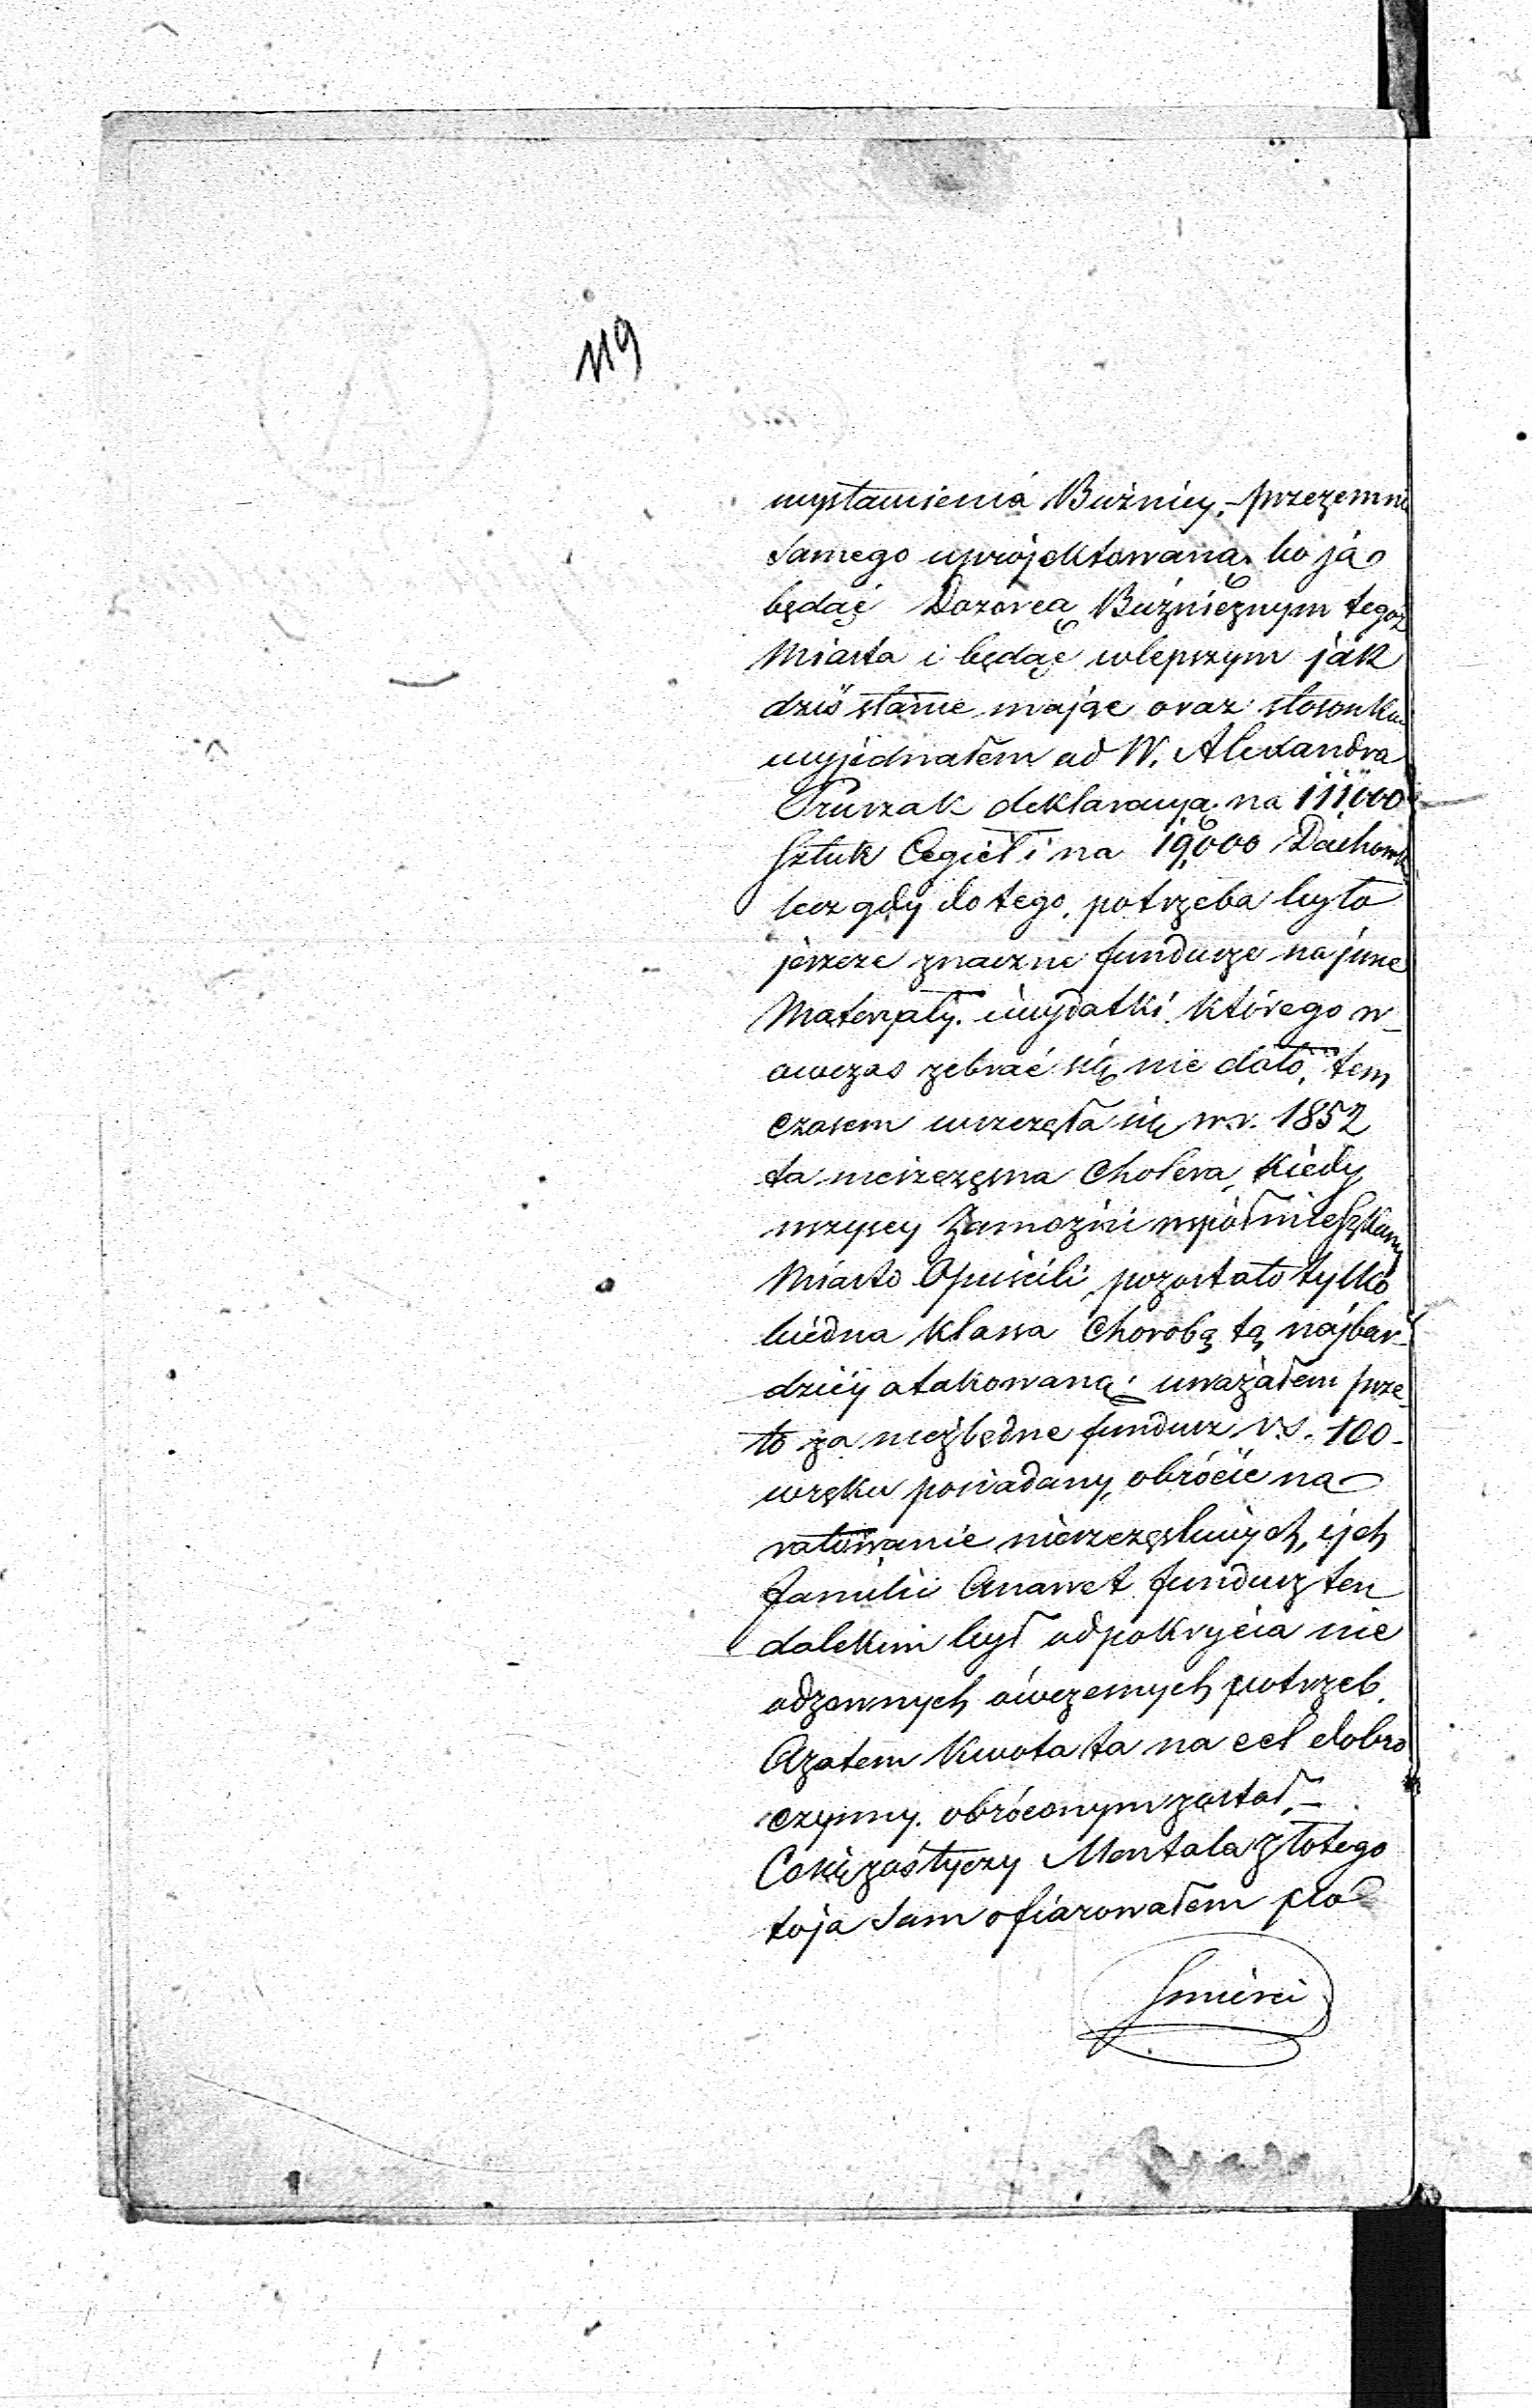 119
wystawienia Buźnicy, – przezemnie
samego uprojektowaną, bo ja
będąc Dozorcą Buźnicznym tegoż
Miasta i będąc wlepszym jak
dziś stanie mając oraz stosunki
wyjednałem od W. Alexandra
Pruszak deklaracyą na 111000
Sztuk Cegieł i na 19,000 Dachowk
lecz gdy do tego, potrzeba było
jeszcze znaczne fundusze na jnne
Materyały. iwydatki którego w_
owczas zebrać się nie dało, tem
czasem wszczęła się w r. 1852
ta nieszczęsna Cholera, Kiedy
wszyscy Zamozni wpółmieszkancy
Miasto Opuscili, pozostało tylko
biedna Klassa Chorobą tą najbar_
dziéj atakowaną; uważałem prze_
to za niezbędne fundusz r.s. 100–
wręku posiadany, obrócić na
ratowanie nieszczęsliwych, ijch
familii Anawet fundusz ten
dalekim był odpokrycia nie
odzownych ówczesnych potrzeb.
Azatem Kwota ta na cel dobro
czynny. obróconym został, –
Cosię zaś tyczy Mentala złotego
toja sam ofiarowałem po
Smierci